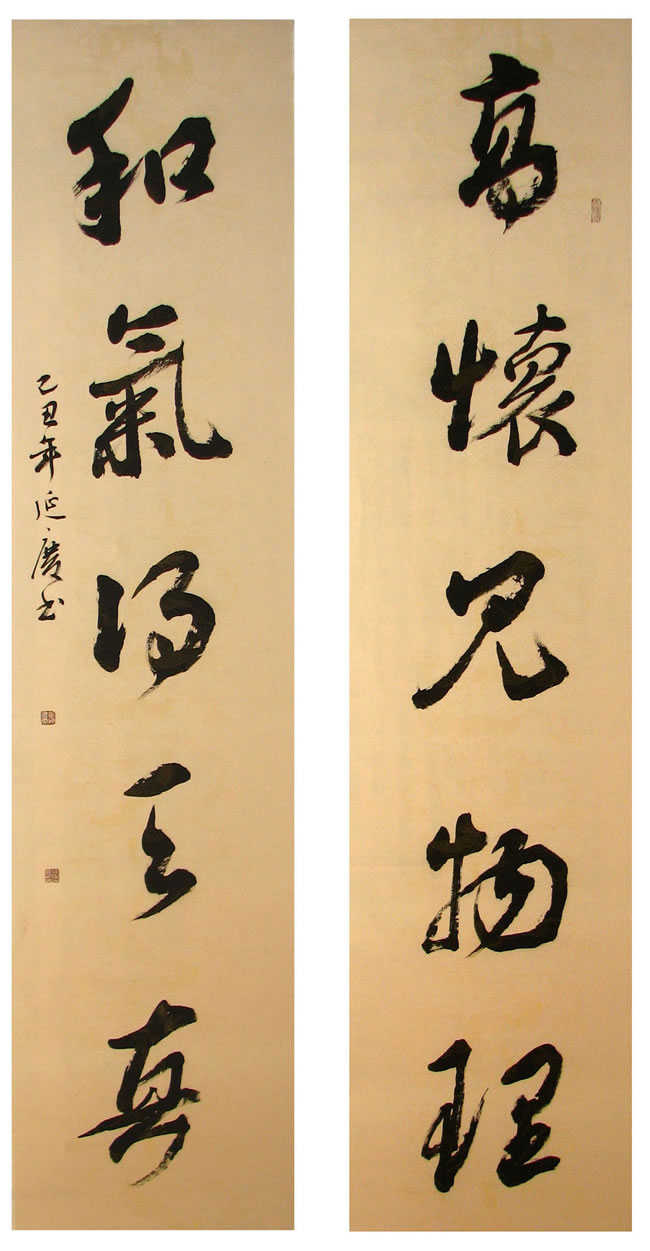 高懷見物理
和氣得天真
乙丑年延慶书